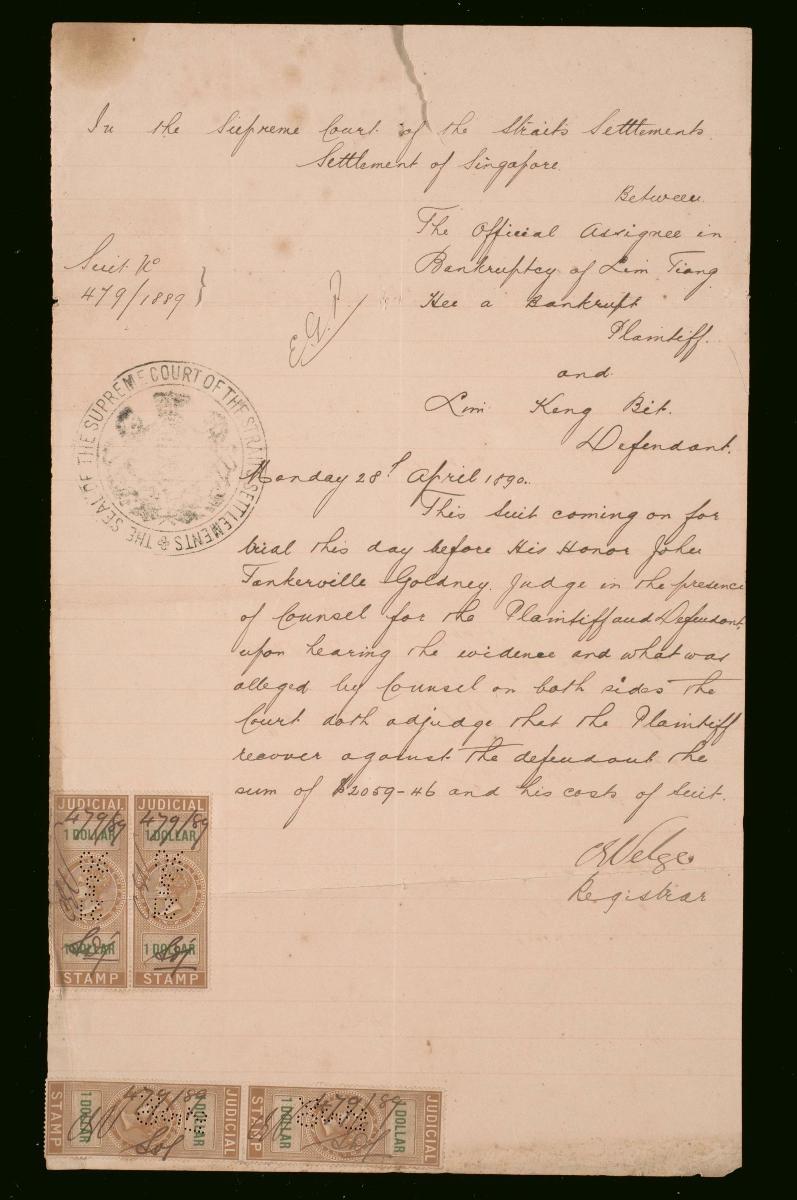 In the Supreme Court of the Straits Settlements.
Settlement of Singapore.
Between
The Official Assignee in
Bankruptcy of Lim Tiang
Hee a Bankrupt
Plaintiff.
and
Lim Keng Bit.
Defendant.
Suit No
479/1889
E.G.P.
THE SEAL OF THE SUPREME COURT OF THE STRAITS SETTLEMENTS
Monday 28th April 1890.
This Suit coming on for
trial this day before His Honor John
Tankerville Goldney. Judge in the presence
of Counsel for the Plaintiff and Defendant,
upon hearing the evidence and what was
alleged by Counsel on both sides The
Court doth adjudge that the Plaintiff
recover against the defendant the
sum of $2059-46 and his costs of Suit.
Registrar
JUDICIAL
479/89
1 DOLLAR
1 DOLLAR
STAMP
JUDICIAL
479/89
1 DOLLAR
1 DOLLAR
STAMP
STAMP
1 DOLLAR
479/89
1 DOLLAR
JUDICIAL
STAMP
1 DOLLAR
479/89
1 DOLLAR
JUDICIAL